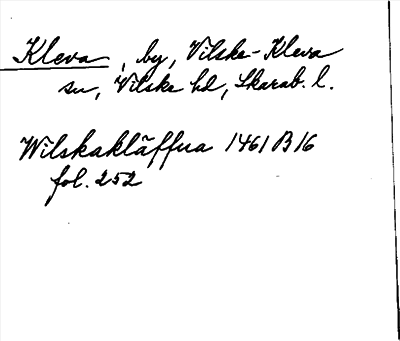 Kleva, by, Vilske-Kleva
sn, Vilske hd, Skarab. l.
Wilskakläffua 1461 B 16
fol. 252